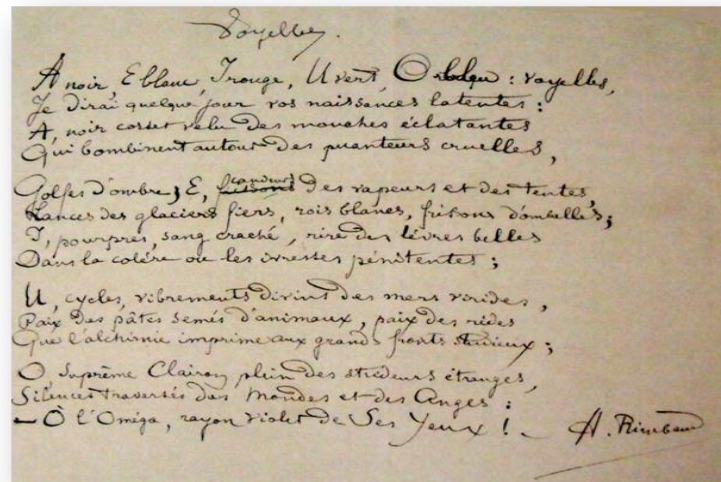 Voyelles.
A noir, E blanc, I rouge, U vert, O bleu : voyelles,
Je dirai quelque jour vos naissances latentes :
A, noir corset velu des mouches éclatantes
Qui bombinent autour des puanteurs cruelles,
Golfes d'ombre ; E, frissons candeurs des vapeurs et des tentes,
Lances des glaciers fiers, rois blancs, frissons d'ombelles ;
I, pourpres, sang craché, rire des lèvres belles
Dans la colère ou les ivresses pénitentes ;
U, cycles, vibrements divins des mers virides,
Paix des pâtis semés d'animaux, paix des rides
Que l'alchimie imprime aux grands fronts studieux ;
O Suprême Clairon plein des strideurs étranges,
Silences traversés des Mondes et des Anges :
— O l'Oméga, rayon violet de Ses Yeux ! —
A. Rimbaud